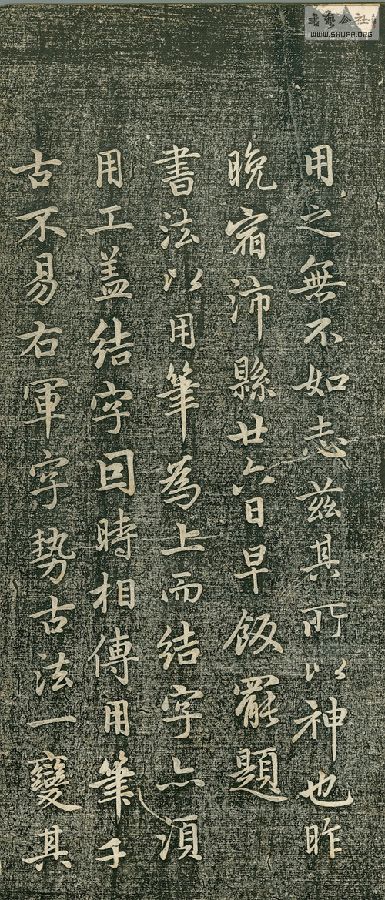 用之無不如志茲其所以神也昨
晚宿沛縣廿六日早飯罷題
書法以用筆為上而結字亦須
用工盖結字因時相傳用筆千
古不易右軍字勢古法一變其
书艺公社
WWW.SHUFA.ORG